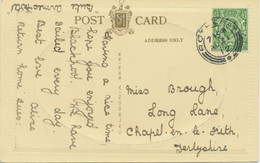 POST CARD
ADDRESS ONLY
Having a nice time
hope you enjoyed
We have
sailed every day.
Best love
Return home
Miss Brough,
Long Lane,
Chapel-en-le-Frith,
Derbyshire